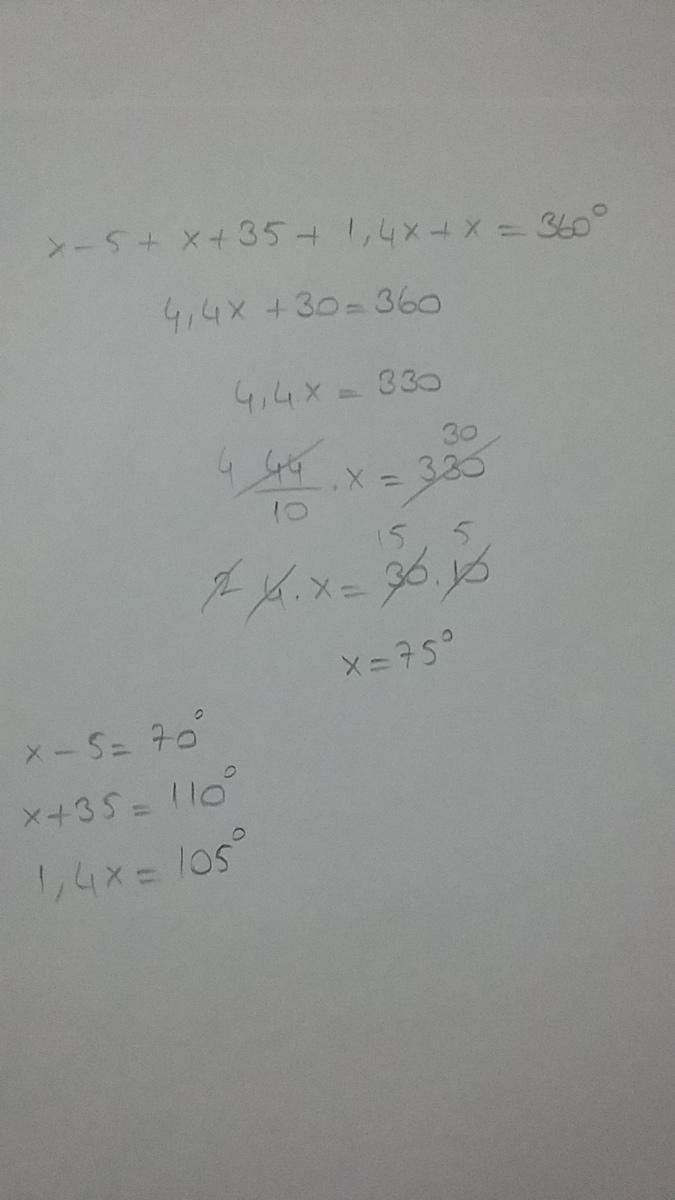 x - 5 + x + 35 + 1,4x + x = 360°
4,4x + 30 = 360
4,4x = 330
4 44/10 . x = 330 30
2 4 . x = 30 15 . 10 5
x = 75°
x - 5 = 70°
x + 35 = 110°
1,4x = 105°